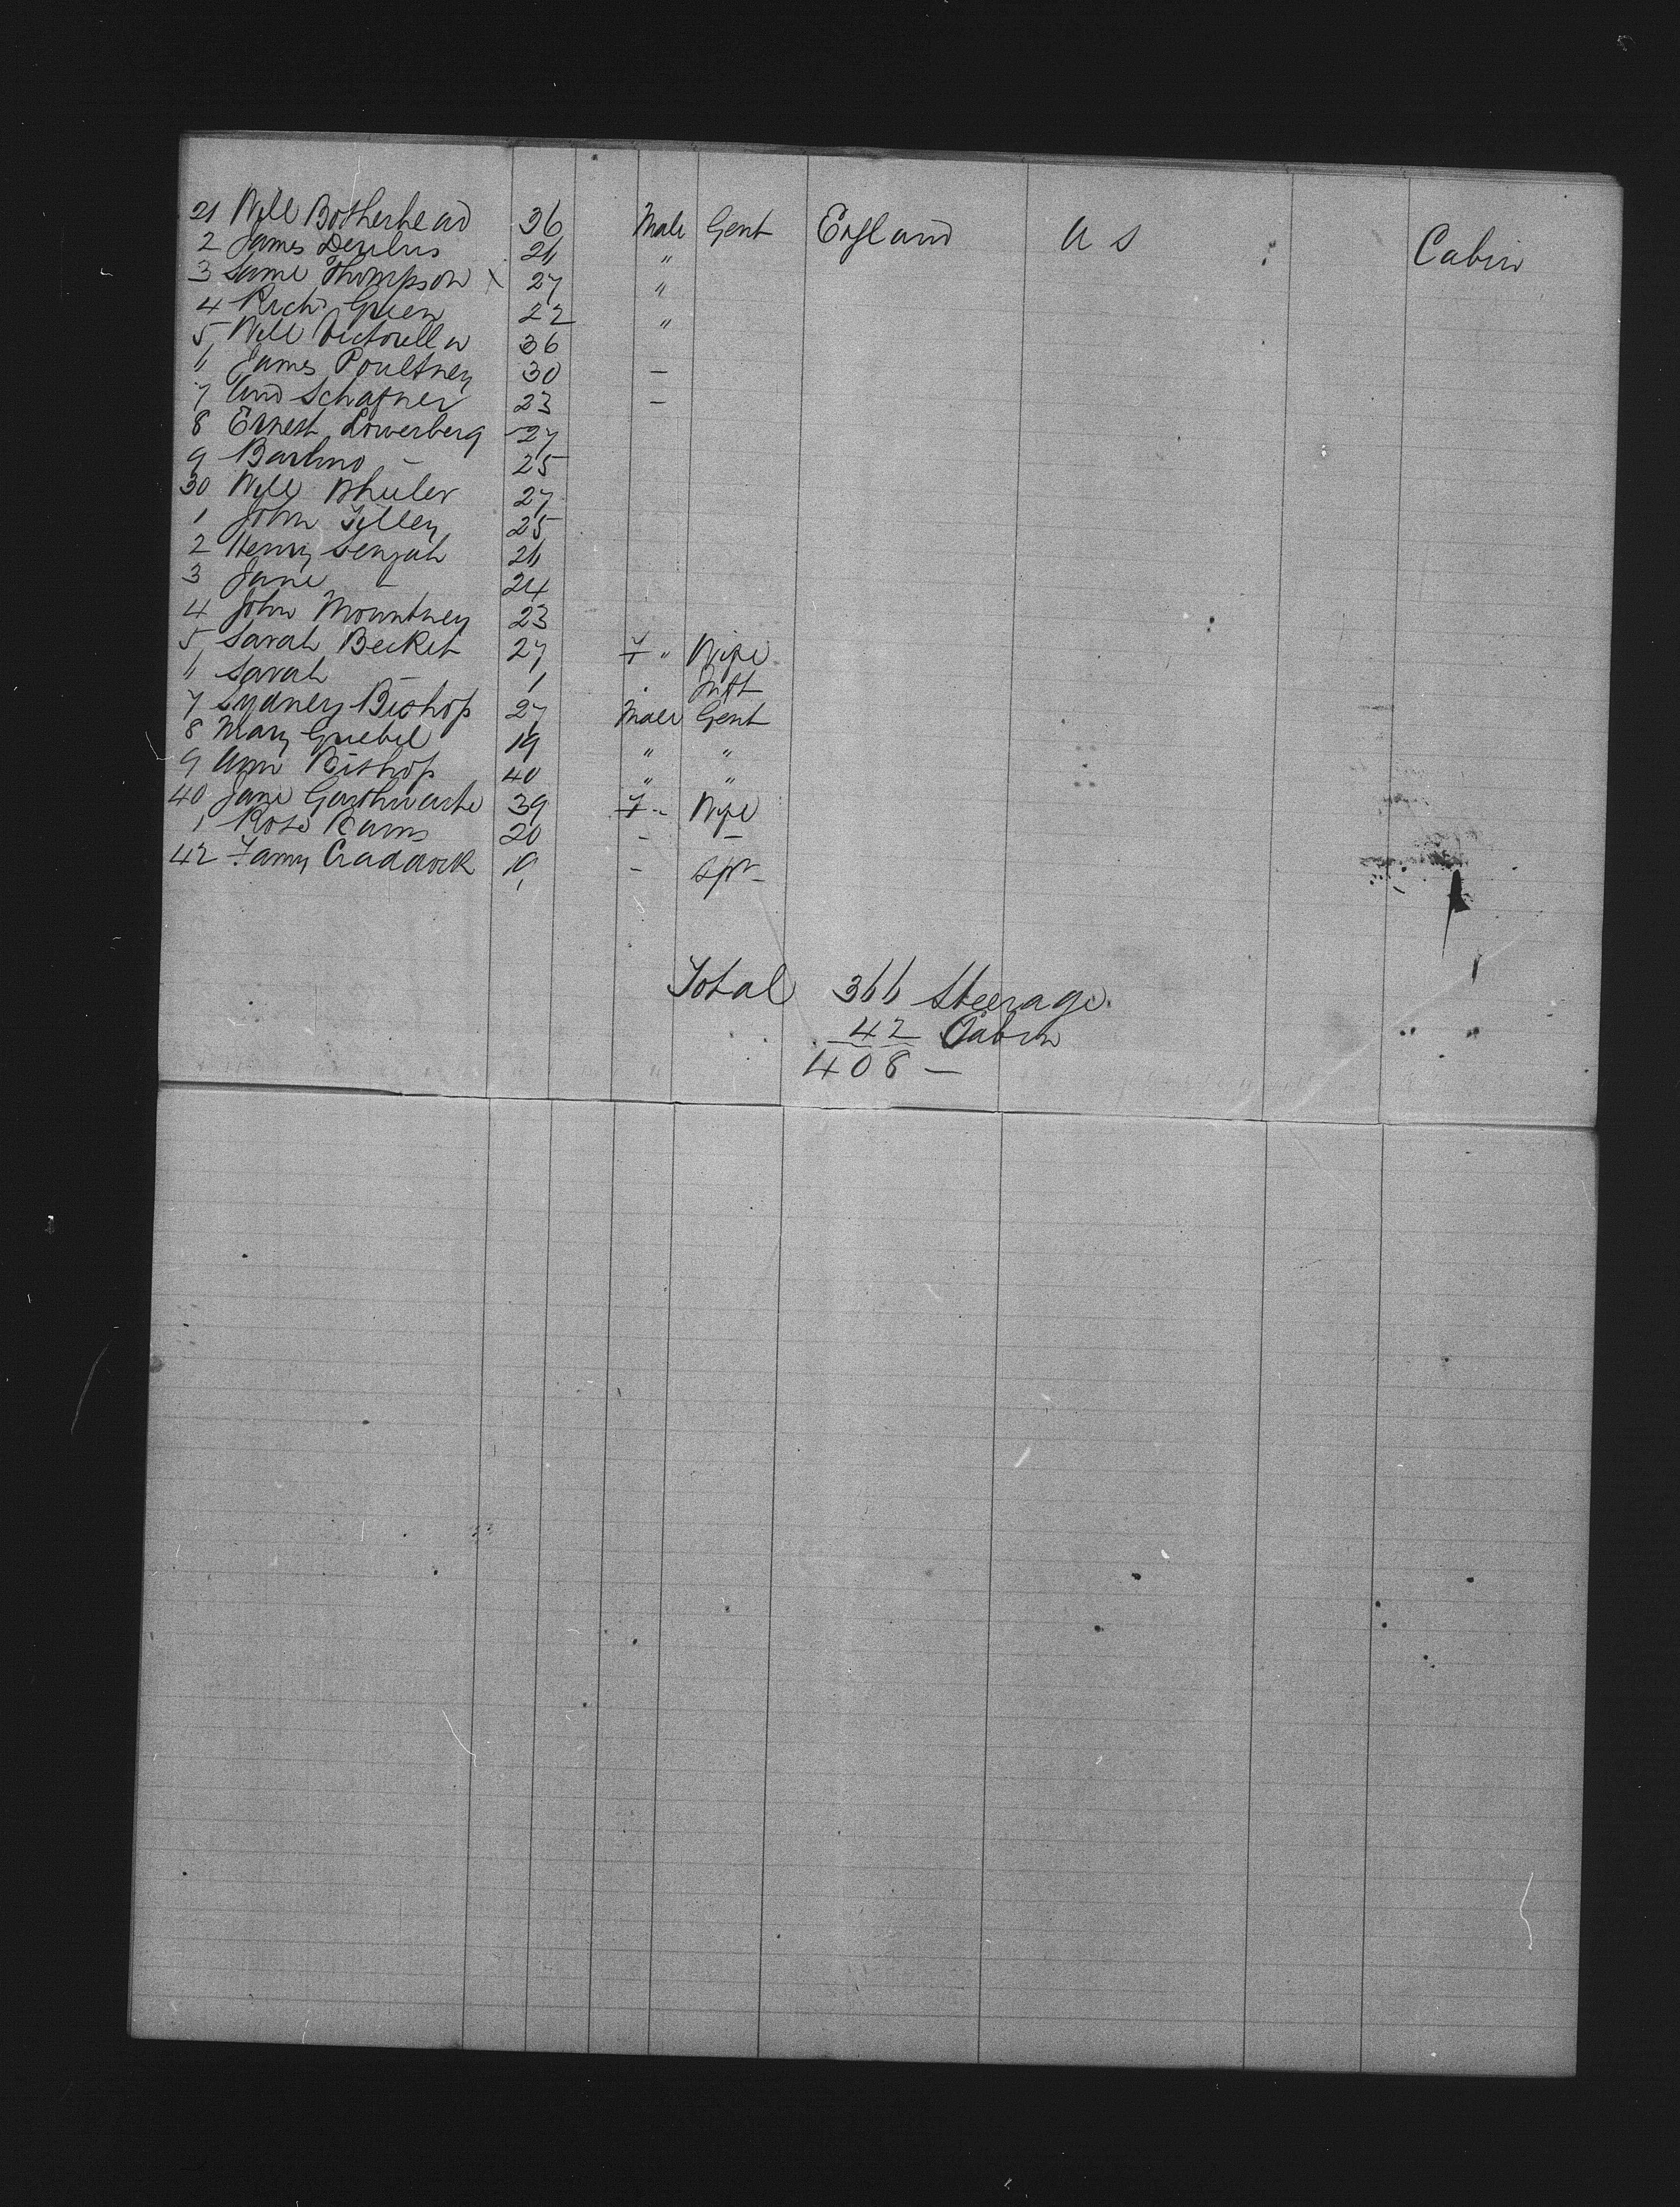 21 Will Botherhead 36 Male Gent England U S Cabin
2 James 26 "
3 Saml Thompson X 27 "
4 Richd Green 22 "
5 Will 36
6 James Poultney 30 -
7 And Schafner 23 -
8 Ernest Lowerberg 27
9 - 25
30 Will 27
1 John Tilley 25
2 Henry 26
3 Jane - 24
4 John Mountney 23
5 Sarah Becket 27 F " Wife
6 Sarah - 1 Inft
7 Sydney Bishop 27 Male Gent
8 Mary Griebel 19 " "
9 Ann Bishop 40 " "
40 Jane Garthwaite 39 F " Wife
1 Rose 20 - -
42 Fanny Craddock 19 - Spr
Total 366 Steerage
42 Cabin
408 -